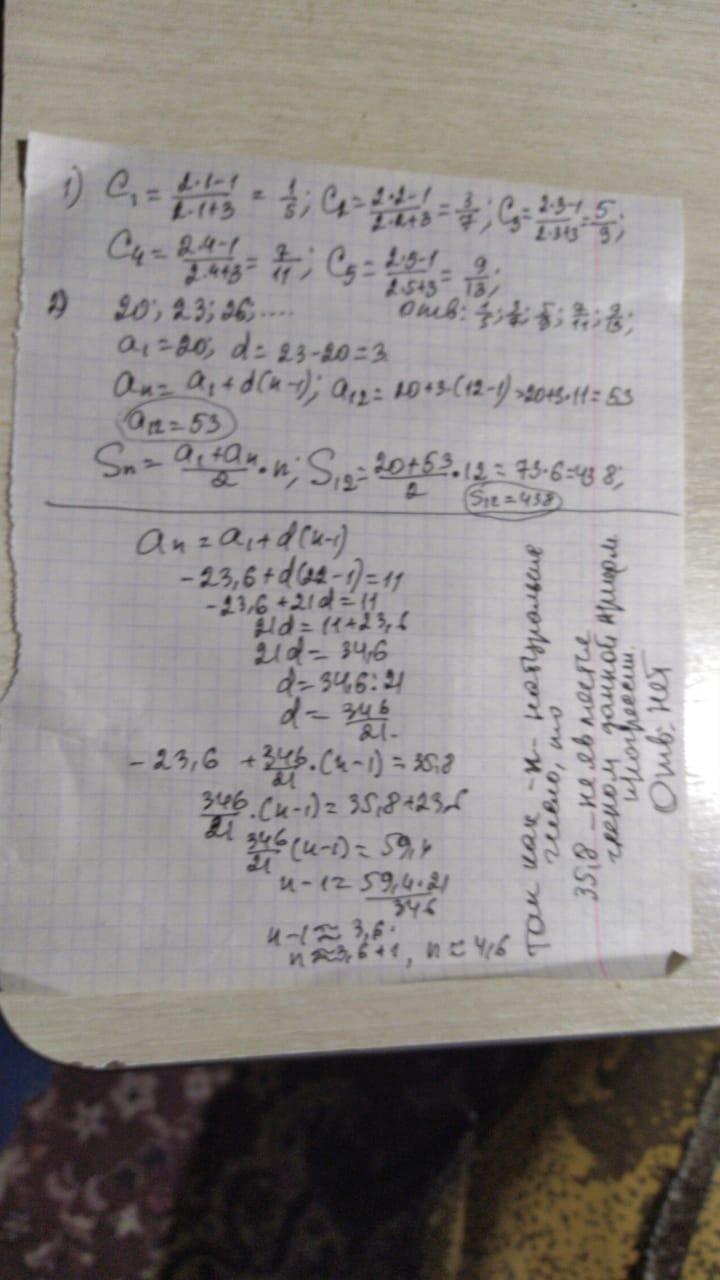 1) C₁ = (2·1-1)/(2·1+3) = 1/5; C₂ = (2·2-1)/(2·2+3) = 3/7; C₃ = (2·3-1)/(2·3+3) = 5/9;
C₄ = (2·4-1)/(2·4+3) = 7/11; C₅ = (2·5-1)/(2·5+3) = 9/13;
2) 20; 23; 26; .... Отв: 1/5; 3/7; 5/9; 7/11; 9/13;
a₁ = 20; d = 23-20 = 3
aₙ = a₁ + d(n-1); a₁₂ = 20+3·(12-1) = 20+3·11 = 53
a₁₂ = 53
Sₙ = (a₁+aₙ)/2 · n; S₁₂ = (20+53)/2 · 12 = 73·6 = 438;
S₁₂ = 438
aₙ = a₁ + d(n-1)
-23,6 + d(22-1) = 11
-23,6 + 21d = 11
21d = 11+23,6
21d = 34,6
d = 34,6 : 21
d = 346/21.
-23,6 + 346/21 · (n-1) = 35,8
346/21 · (n-1) = 35,8+23,6
346/21 (n-1) = 59,4
n-1 = (59,4·21)/346
n-1 ≈ 3,6.
n ≈ 3,6+1, n ≈ 4,6
Так как -n- натуральное
число, то
35,8 - не
членом данной арифм.
прогрессии.
Отв: нет